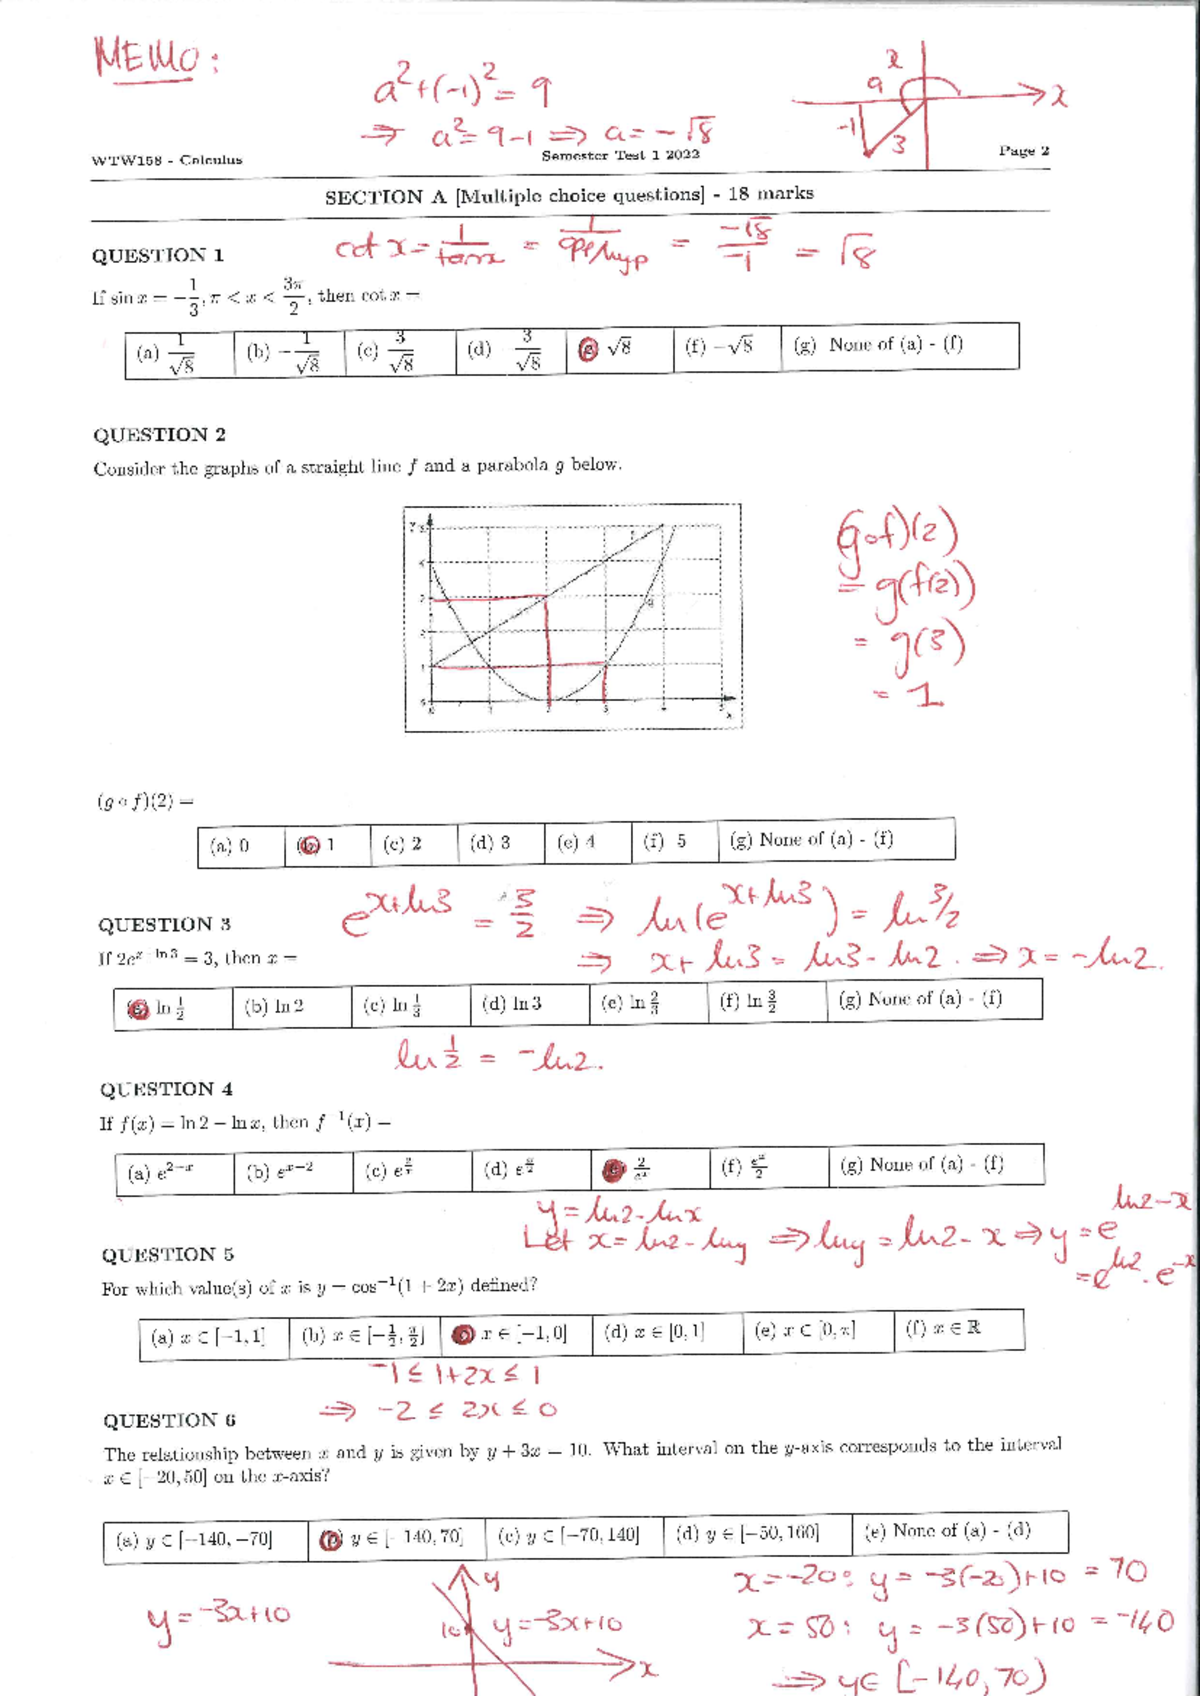 MEMO:
a² + (-1)² = 9
⇒ a² = 9-1 ⇒ a = -√8
x
9
-1
3
x
WTW158 - Calculus
Semester Test 1 2022
Page 2
SECTION A [Multiple choice questions] - 18 marks
QUESTION 1
cot x = 1/tan x = 1/opp/hyp = -√8/-1 = √8
If sin x = -1/3, π < x < 3π/2, then cot x =
(a) 1/√8 (b) -1/√8 (c) 3/√8 (d) 3/√8 (e) √8 (f) -√8 (g) None of (a) - (f)
QUESTION 2
Consider the graphs of a straight line f and a parabola g below.
(g∘f)(2)
= g(f(2))
= g(3)
= 1
(g ∘ f)(2) =
(a) 0 (b) 1 (c) 2 (d) 3 (e) 4 (f) 5 (g) None of (a) - (f)
e^(x+ln3) = 3/2 ⇒ ln(e^(x+ln3)) = ln 3/2
QUESTION 3
If 2e^(x ln 3) = 3, then x =
⇒ x + ln3 = ln3 - ln2. ⇒ x = -ln2.
(a) ln 1/2 (b) ln 2 (c) ln 1/3 (d) ln 3 (e) ln 2/3 (f) ln 3/2 (g) None of (a) - (f)
ln 1/2 = -ln2.
QUESTION 4
If f(x) = ln 2 − ln x, then f⁻¹(x) =
(a) e^(2−x) (b) e^(x−2) (c) e^(2/x) (d) e^(x/2) (e) 2/e^x (f) e^x/2 (g) None of (a) - (f)
y = ln2 - lnx
Let x = ln2 - lny ⇒ lny = ln2 - x ⇒ y = e^(ln2-x)
= e^ln2 . e^-x
QUESTION 5
For which value(s) of x is y = cos⁻¹(1 + 2x) defined?
(a) x ∈ [−1, 1] (b) x ∈ [−1/2, π/2] x ∈ [−1, 0] (d) x ∈ [0, 1] (e) x ∈ [0, π] (f) x ∈ ℝ
-1 ≤ 1+2x ≤ 1
⇒ -2 ≤ 2x ≤ 0
QUESTION 6
The relationship between x and y is given by y + 3x = 10. What interval on the y-axis corresponds to the interval
x ∈ [−20, 50] on the x-axis?
(a) y ∈ [−140, −70] (b) y ∈ [−140, 70] (c) y ∈ [−70, 140] (d) y ∈ [−50, 160] (e) None of (a) - (d)
y = -3x+10
y
10
y = -3x+10
x
x = -20: y = -3(-20)+10 = 70
x = 50: y = -3(50)+10 = -140
⇒ y ∈ [-140, 70)